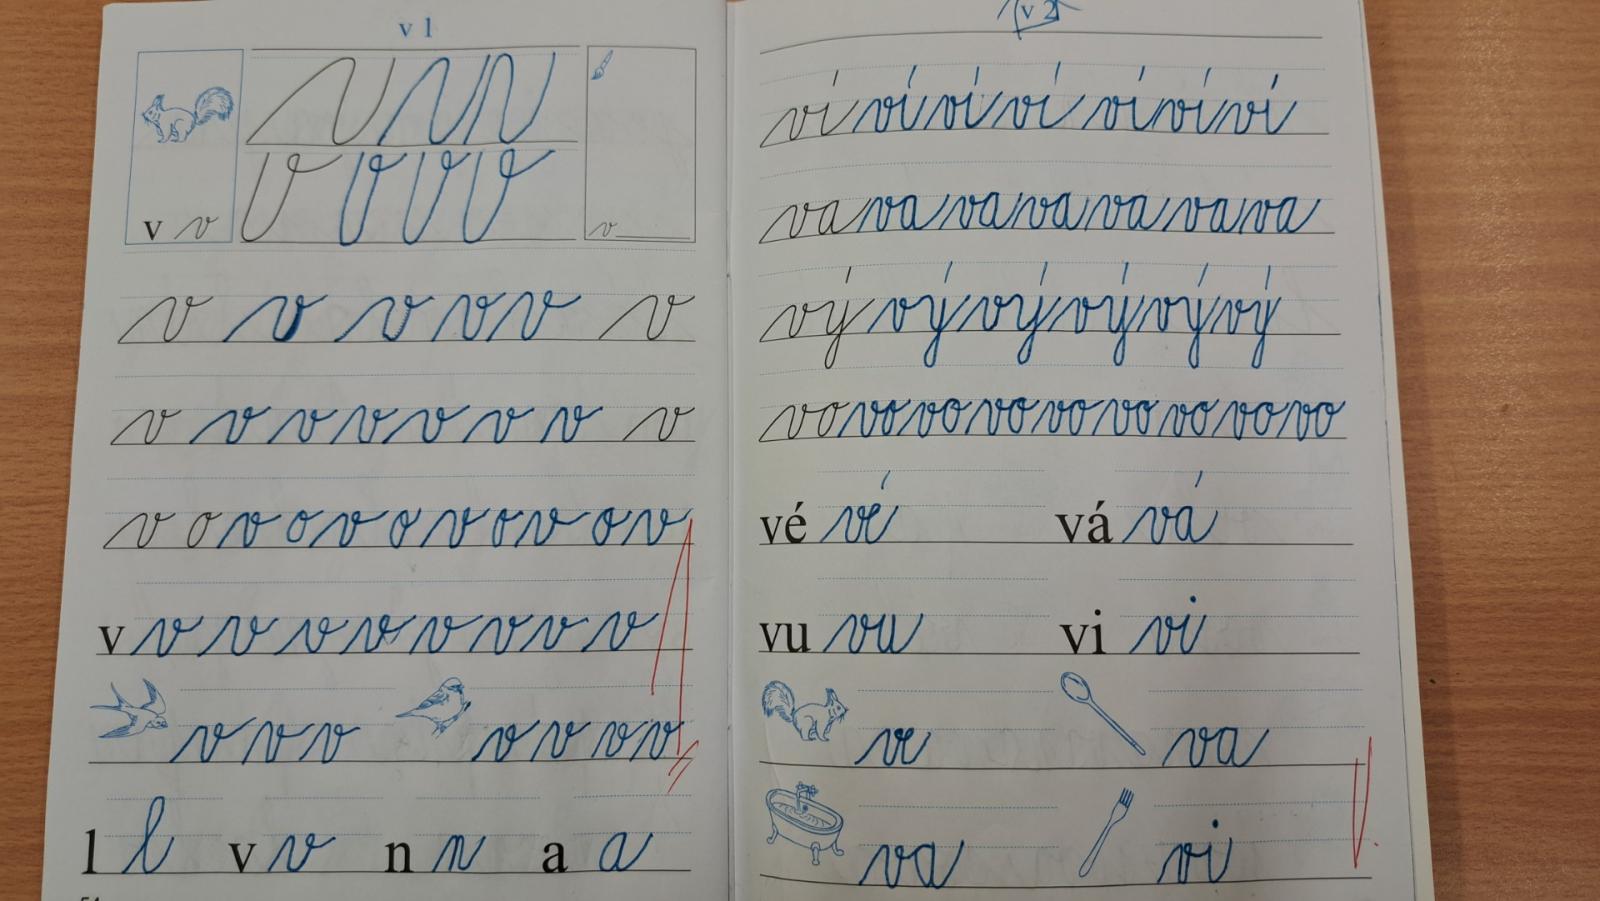 v 1
v v
v
v v v v v v
v v v v v v v v
v o v o v o v o v o v
v v v v v v v v v
v v v v v v v
l l v v n n a a
v 2
ví ví ví ví ví ví ví
va va va va va va va
vý vý vý vý vý vý
vo vo vo vo vo vo vo vo vo
vé vé vá vá
vu vu vi vi
ve va
va vi